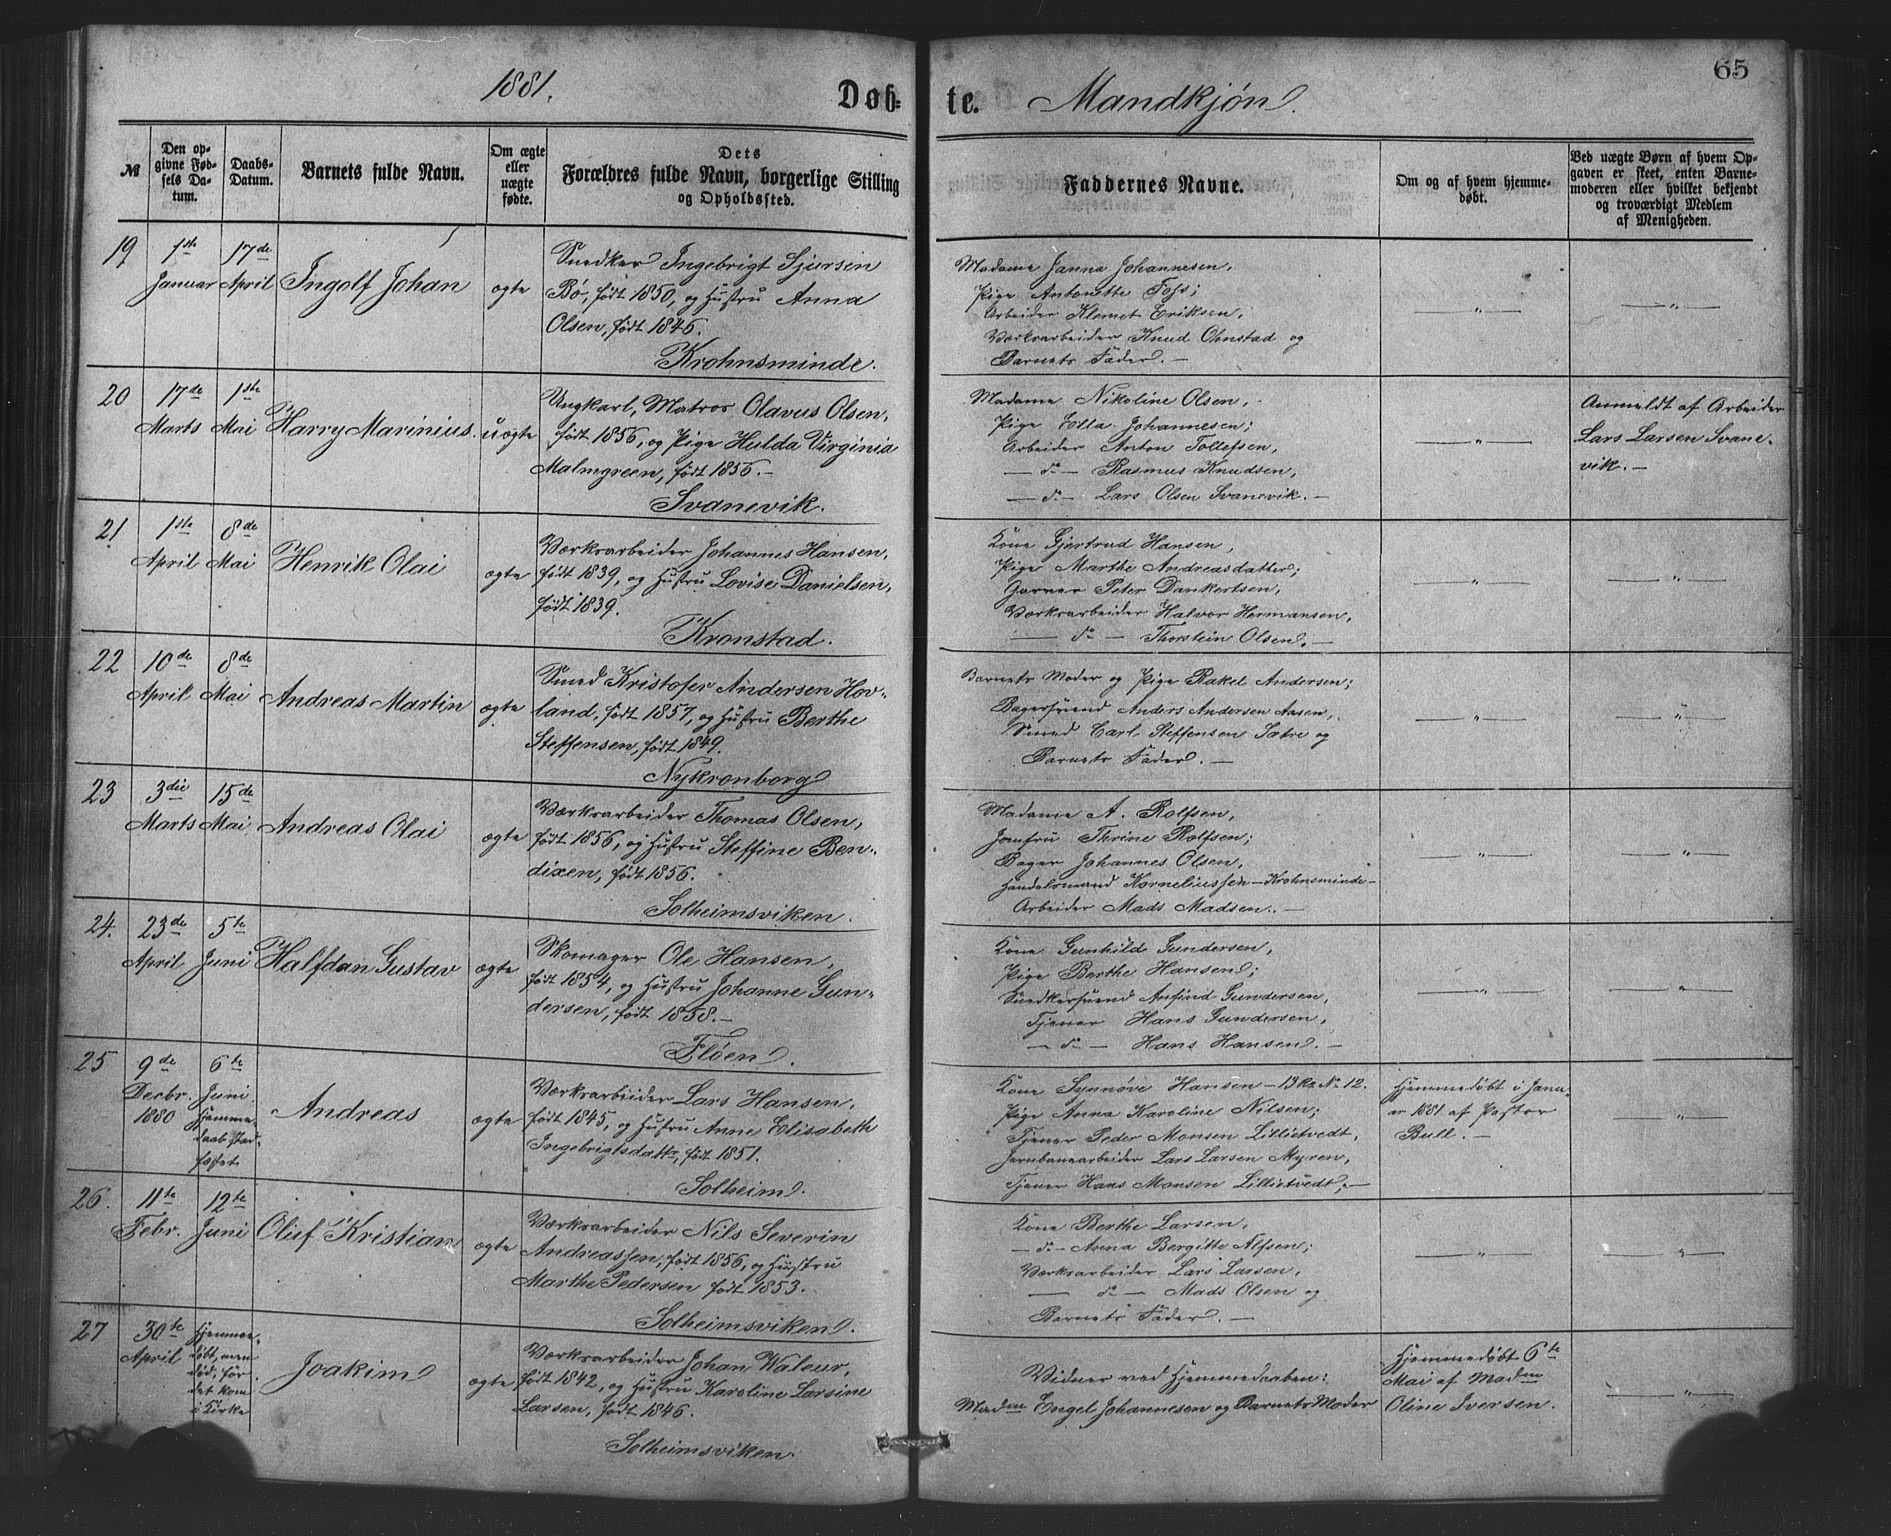 65
1881.
Døb-
te. Mandkjøn.
№
Den op-
givne Fød-
sels Da-
tum.
Daabs-
Datum.
Barnets fulde Navn.
Om ægte
eller
uægte
fødte.
Dets
Forældres fulde Navn, borgerlige Stilling
og Opholdssted.
Faddernes Navne.
Om og af hvem hjemme-
døbt.
Ved uægte Børn af hvem Op-
gaven er skeet, enten Barne-
moderen eller hvilket bekjendt
og troværdigt Medlem
af Menigheden.
19
1ste
Januar
17de
April
Ingolf Johan
ægte
Snedker Ingebrigt Sjursen
Bø, født 1850, og Hustru Anna
Olsen, født 1846.
Krohnsminde.
Madame Janna Johannesen,
Pige Antonette Foss;
Arbeider Klemet Eriksen,
Værksarbeider Knud Olmstad og
Barnets Fader. —
— " —
— " —
20
17de
Marts
1ste
Mai
Harry Marinius.
uægte
Ungkarl, Matros Olavus Olsen,
født 1856, og Pige Hulda Virginia
Malmgreen, født 1856. —
Svanevik.
Madame Nikoline Olsen,
Pige Ella Johannesen;
Arbeider Anton Tollefsen,
— do — Rasmus Knudsen,
— do — Lars Olsen Svanevik. —
— " —
Anmeldt af Arbeider
Lars Larsen Svane-
vik. —
21
1ste
April
8de
Mai
Henrik Olai
ægte
Værksarbeider Johannes Hansen,
født 1839, og Hustru Lovise Danielsen,
født 1839.
Kronstad.
Kone Gjertrud Hansen,
Pige Marthe Andreasdatter;
Garver Peter Dankertsen,
Værksarbeider Halvor Hermansen,
— do — Thorstein Olsen. —
— " —
— " —
22
10de
April
8de
Mai
Andreas Martin
ægte
Smed Kristofer Andersen Hov-
land, født 1857, og Hustru Berthe
Steffensen, født 1849.
Nykronborg
Barnets Moder og Pige Rakel Andersen;
Bagersvend Anders Andersen Aasen,
Smed Carl Steffensen Sætre og
Barnets Fader. —
— " —
— " —
23
3die
Marts
15de
Mai
Andreas Olai
ægte
Værksarbeider Thomas Olsen,
født 1856, og Hustru Steffine Ben-
dixen, født 1856.
Solheimsviken.
Madame A. Rolfsen,
Jomfru Thrine Rolfsen;
Bager Johannes Olsen,
Handelsmand Korneliussen – Krohnsminde –
Arbeider Mads Madsen. —
— " —
— " —
24.
23de
April
5te
Juni
Halfdan Gustav
ægte
Skomager Ole Hansen,
født 1854, og Hustru Johanne Gun-
dersen, født 1858. —
Fløen.
Kone Gunhild Gundersen,
Pige Berthe Hansen;
Snedkersvend Anfind Gundersen,
Tjener Hans Gundersen,
— do — Hans Hansen. —
— " —
— " —
25
9de
Decbr.
1880
6te
Juni.
Hjemme-
daab stad-
fæstet
Andreas
ægte
Værksarbeider Lars Hansen,
født 1845, og Hustru Anne Elisabeth
Ingebrigtsdattr, født 1851.
Solheim.
Kone Synnøve Hansen – 13 R. No 12.
Pige Anna Karoline Nilsen;
Tjener Peder Monsen Lillietvedt,
Jernbanearbeider Lars Larsen Myren,
Tjener Hans Monsen Lillietvedt. —
Hjemmedøbt i Janu-
ar 1881 af Pastor
Bull. —
— " —
26.
11te
Febr.
12te
Juni
Oluf Kristian
ægte
Værksarbeider Nils Severin
Andreassen, født 1856, og Hustru
Marthe Pedersen født 1853.
Solheimsviken.
Kone Berthe Larsen,
— do — Anna Bergitte Alfsen;
Værksarbeider Lars Larsen,
— do — Mads Olsen og
Barnets Fader. —
— " —
— " —
27
30te
April
Hjemme-
døbt, men
død, før
det kom
i Kirke
Joakim
ægte
Værksarbeider Johan Waleur,
født 1842, og Hustru Karoline Larsine
Larsen, født 1846.
Solheimsviken.
Vidner ved Hjemmedaaben:
Madm Engel Johannesen og Barnets Moder
Hjemmedøbt 6te
Mai af Madm
Oline Iversen.
— " —